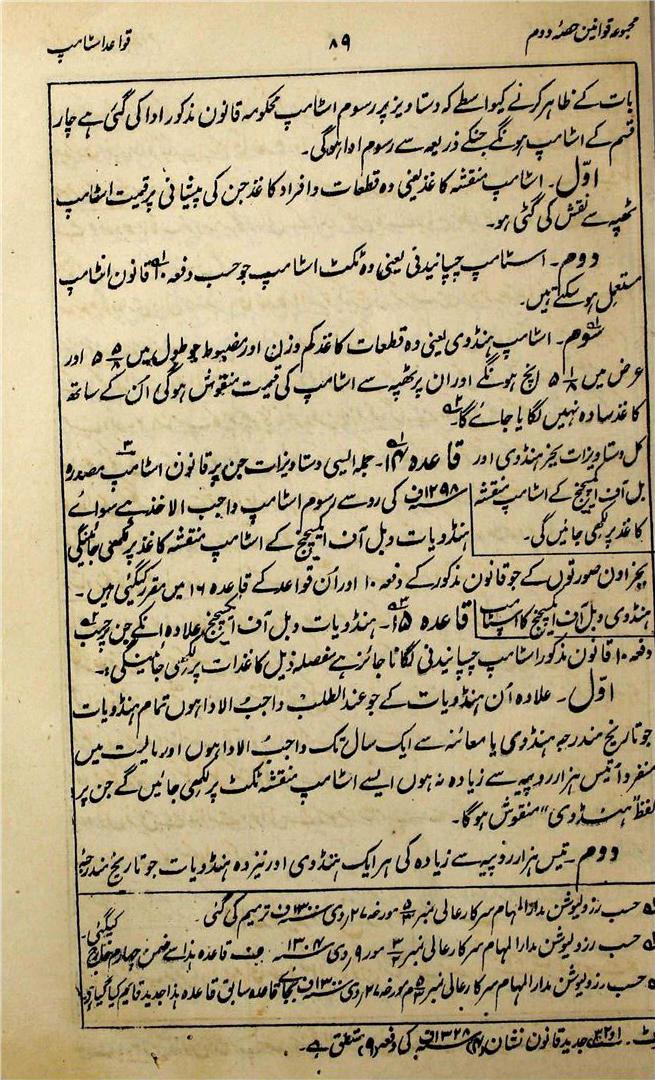 مجموعہ قوانین حصۂ دوم
۸۹
قواعد اسٹامپ
بات کے ظاہر کرنے کیواسطے کہ دستاویز پر رسوم اسٹامپ محکومہ قانون مذکور ادا کی گئی ہے چار
قسم کے اسٹامپ ہونگے جنکے ذریعہ سے رسوم ادا ہوگی۔
اوّل۔ اسٹامپ منقشہ کاغذ یعنی وہ قطعات و افراد کاغذ جن کی پیشانی پر قیمت اسٹامپ
ٹھپہ سے نقش کی گئی ہو۔
دوم۔ اسٹامپ چسپانیدنی یعنی وہ ٹکٹ اسٹامپ جو حسب دفعہ ۱۰ قانون اسٹامپ
مستعمل ہو سکتے ہیں۔
سوم۔ اسٹامپ ہنڈوی یعنی وہ قطعات کاغذ کم وزن اور مضبوط جو طول میں ۵ ۵/۸ اور
عرض میں ۵ ۱/۸ انچ ہونگے اور ان پر ٹھپہ سے اسٹامپ کی قیمت منقوش ہوگی ان کے ساتھ
کاغذ سادہ نہیں لگایا جائے گا۔
کل دستاویزات بجز ہنڈوی اور
بل آف ایکسچینج کے اسٹامپ منقشہ
کاغذ پر لکھی جائیں گی۔
قاعدہ ۱۴۔ جملہ ایسی دستاویزات جن پر قانون اسٹامپ مصدرہ
۱۲۹۸ف کی رو سے رسوم اسٹامپ واجب الاخذ ہے سوائے
ہنڈویات و بل آف ایکسچینج کے اسٹامپ منقشہ کاغذ پر لکھی جائینگی
بجز اون صورتوں کے جو قانون مذکور کے دفعہ ۱۰ اور اُن قواعد کے قاعدہ ۱۶ میں مقرر کیگئی ہیں۔
ہنڈوی و بل آف ایکسچینج کا اسٹامپ
قاعدہ ۱۵۔ ہنڈویات و بل آف ایکسچینج علاوہ انکے جن پر حسب
دفعہ ۱۰ قانون مذکور اسٹامپ چسپانیدنی لگانا جائز ہے مفصلہ ذیل کاغذات پر لکھی جائینگی۔
اوّل۔ علاوہ اُن ہنڈویات کے جو عند الطلب واجب الادا ہوں تمام ہنڈویات
جو تاریخ مندرجہ ہنڈوی یا معائنہ سے ایک سال تک واجب الادا ہوں اور مالیت میں
منفرداً تیس ہزار روپیہ سے زیادہ نہ ہوں ایسے اسٹامپ منقشہ ٹکٹ پر لکھی جائیں گے جن پر
لفظ "ہنڈوی" منقوش ہوگا۔
دوم۔ تیس ہزار روپیہ سے زیادہ کی ہر ایک ہنڈوی اور نیز وہ ہنڈویات جو تاریخ مندرجہ
حسب رزولیوشن مدار المہام سرکار عالی نمبر مورخہ ۲۷ دی ۱۳۰۰ف ترمیم کی گئی
حسب رزولیوشن مدار المہام سرکار عالی نمبر مور ۹ دی ۱۳۰۴ قاعدہ ہذا سے ضمن چہارم خارج کیگئی
حسب رزولیوشن مدار المہام سرکار عالی نمبر مورخہ ۲۷ دی ۱۳۰۰ف بجائے قاعدہ سابق قاعدہ ہذا جدید قائم کیا گیا
جدید قانون نشان (۴) ۱۳۲۸ف کی دفعہ (۹) متعلق ہے۔